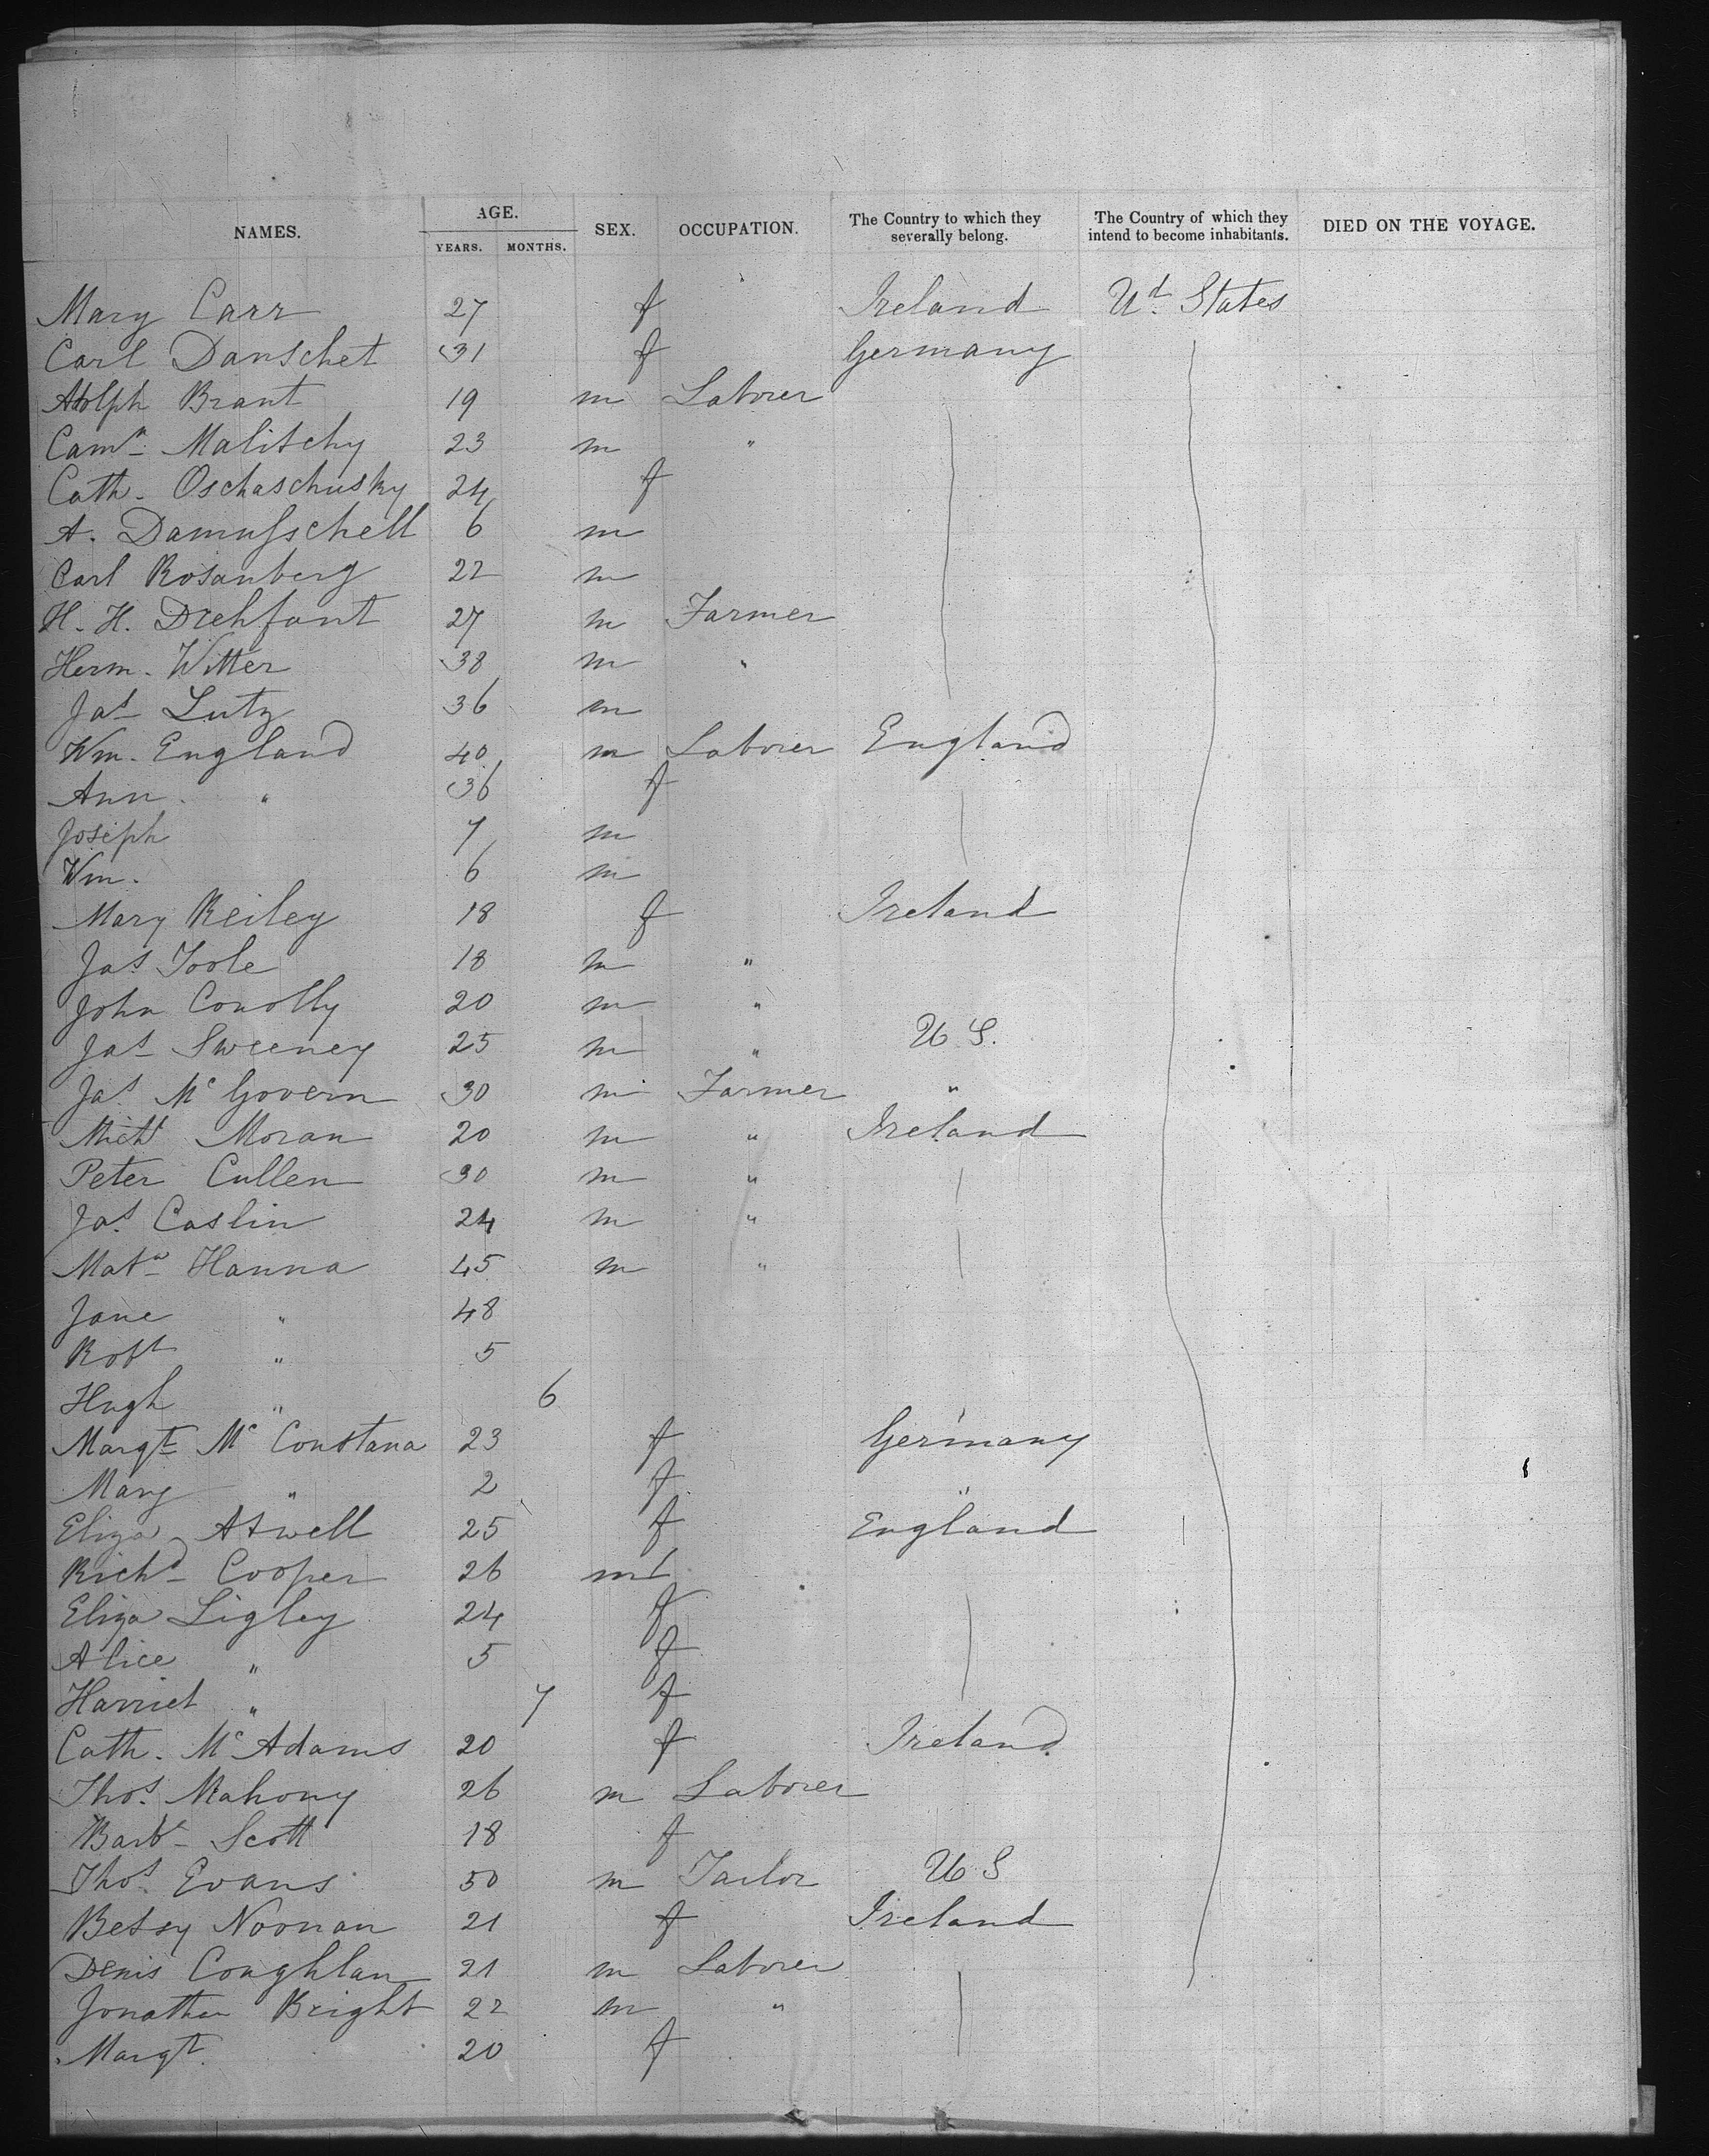 NAMES. AGE. YEARS. MONTHS. SEX. OCCUPATION. The Country to which they severally belong. The Country of which they intend to become inhabitants. DIED ON THE VOYAGE.
Mary Carr 27 f Ireland Ud. States
Carl Danschet 31 f Germany
Adolph Brant 19 m Laborer
Camn. Malitschy 23 m "
Cath. Oschaschusky 24 f
A. Damusschell 6 m
Carl Rosanberg 22 m
H. H. Drehfont 27 m Farmer
Herm. Witter 38 m "
Jas Lutz 36 m
Wm. England 40 m Laborer England
Ann. " 36 f
Joseph 7 m
Wm. 6 m
Mary Reiley 18 f Ireland
Jas. Toole 18 m "
John Conolly 20 m "
Jas Sweeney 25 m " U.S.
Jas. Mc Govern 30 m Farmer "
Michl Moran 20 m " Ireland
Peter Cullen 30 m "
Jas. Caslin 24 m "
Matw Hanna 45 m "
Jane " 48
Robt " 5
Hugh " 6
Margt Mc Constana 23 f Germany
Mary " 2 f "
Eliza Atwell 25 f England
Richd Cooper 26 m
Eliza Ligley 24 f
Alice " 5 f
Harriet " 7 f
Cath. Mc Adams 20 f Ireland
Thos. Mahony 26 m Laborer
Barb Scott 18 f
Thos. Evans 50 m Tailor U.S
Betsy Noonan 21 f Ireland
Denis Coughlan 21 m Laborer
Jonathan Bright 22 m "
Margt. 20 f